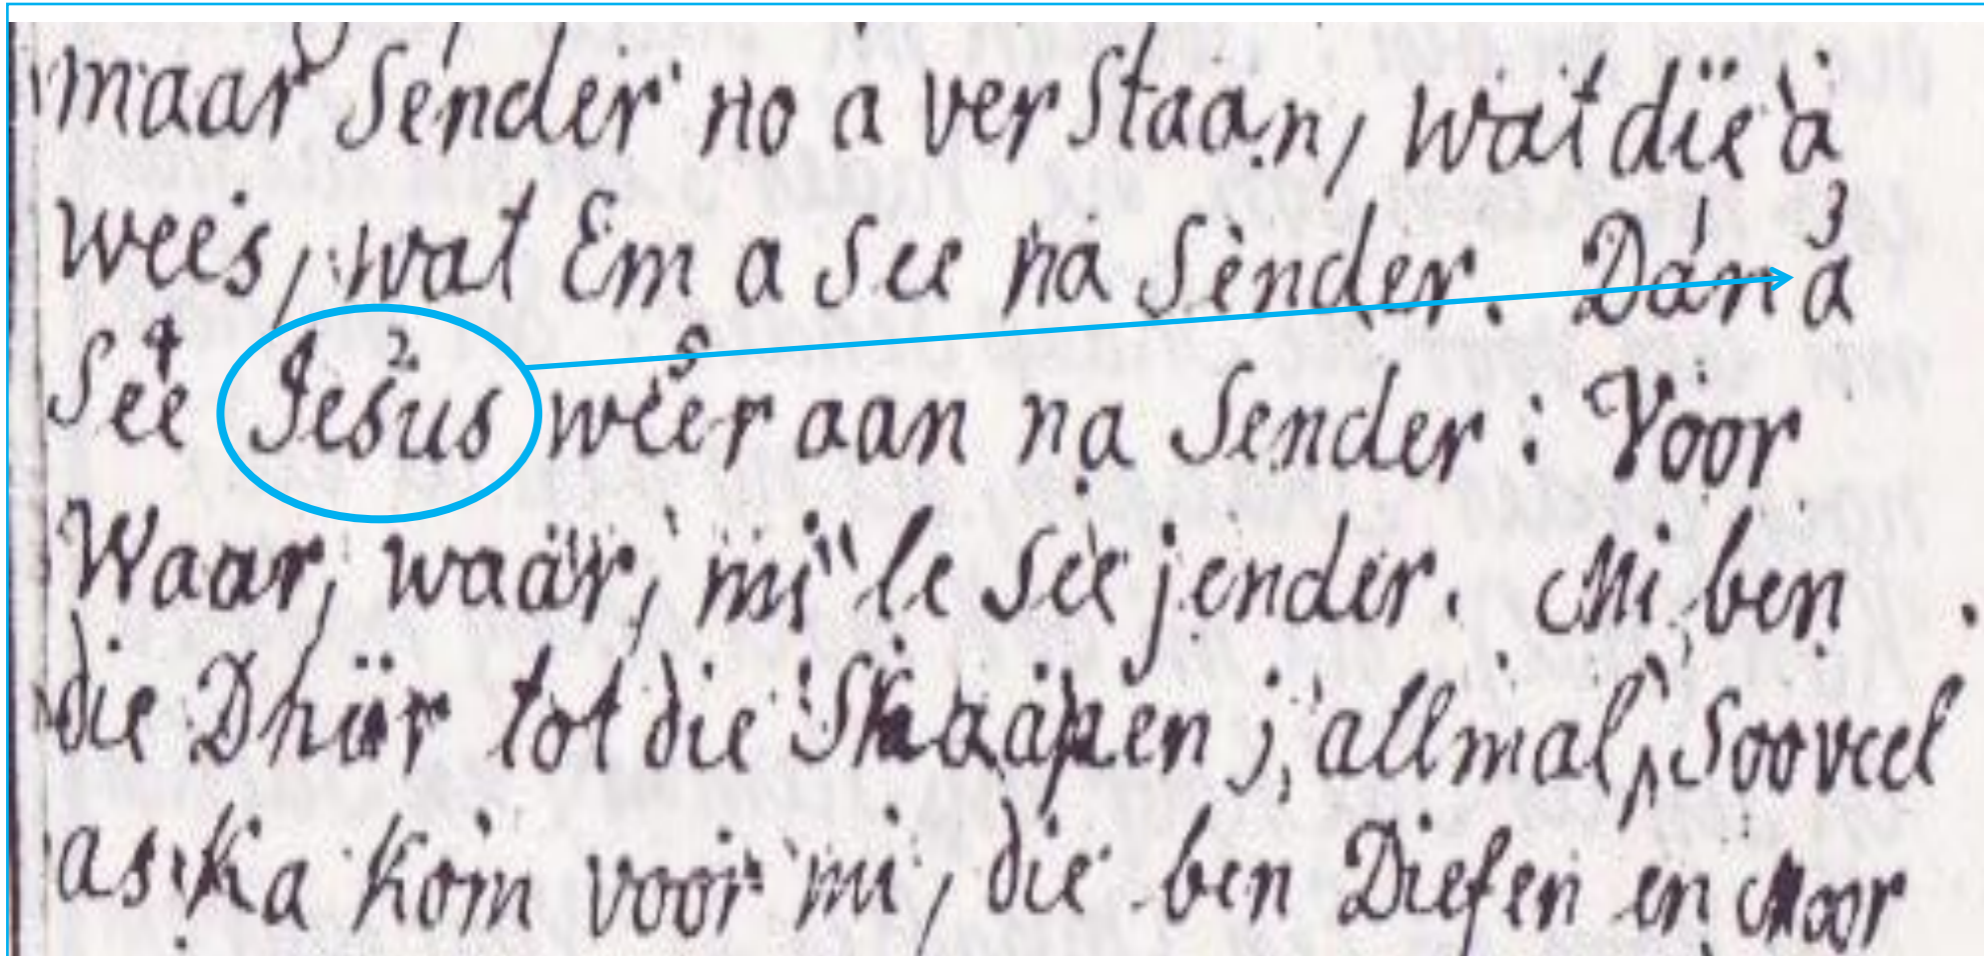 maar sender no a verstaan, wat die a
wees, wat Em a see na sender. Dan 1 a 3
see 4 Jesus 2 weer 5 aan na sender: Voor
Waar, waar, mi le see jender. Mi ben
die Dhür tot die Skaapen; allmal, sooveel
as ka kom voor mi, die ben Diefen en Moor